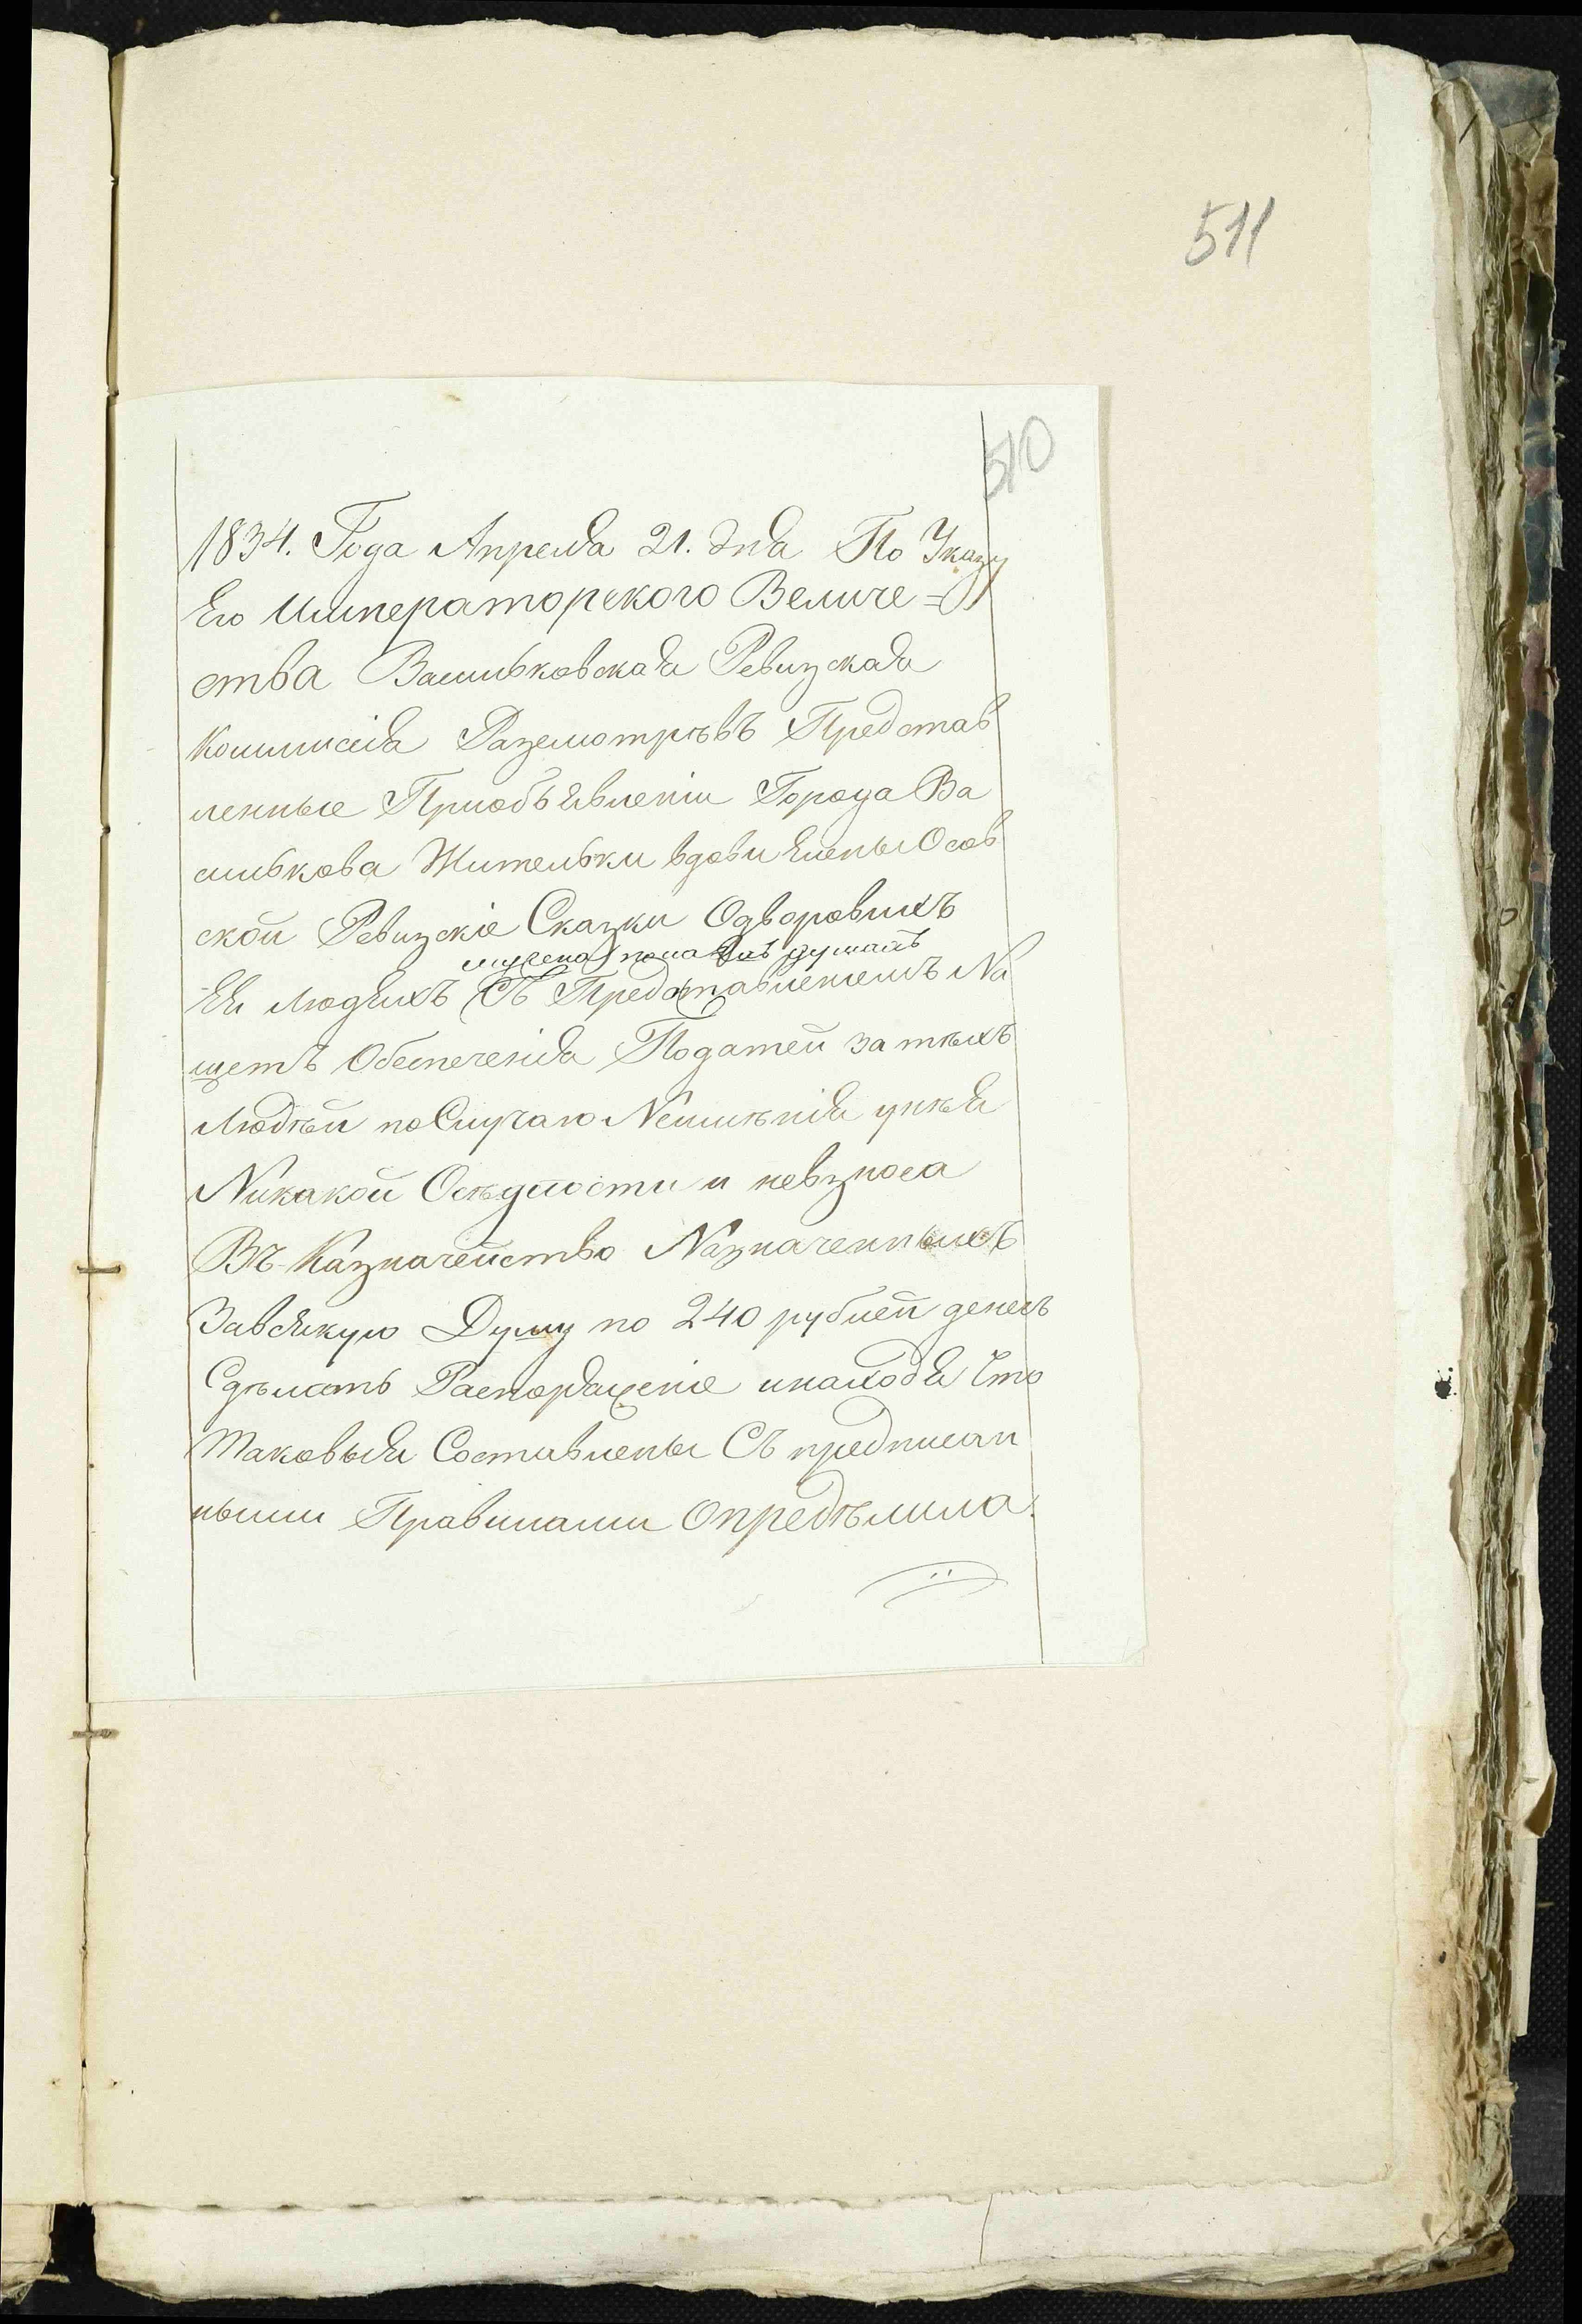 511
510
1834. Года Апреля 21. дня По Указу
Его Императорского Величе=
ства Васильковская Ревизская
Коммисія Разсмотрѣвъ Представ
ленные Приобъявленіи Города Ва
силькова Жительки вдови Елены Осов
ской Ревизскіе Сказки Одворовихъ
мужеска пола душахъ
Ея людяхъ Съ Представленіемъ На
щетъ Обеспеченія Податей за тѣхъ
Людѣй по Случаю Неимѣнія унѣя
Никакой Осѣдлости и невзноса
Въ Казначейство Назначенныхъ
Завсякую Душу по 240 рублей денегъ
Сдѣлать Распоряженіе инаходя Что
таковыя Составлены Съ предписан
ными Правилами Опредѣлила.